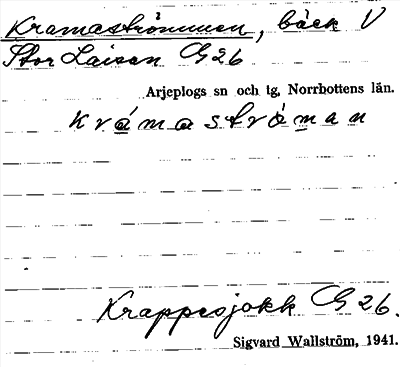 Kramaströmmen, bäck V
Stor Laisan G 26
Arjeplogs sn och tg, Norrbottens län.
krámaströ̀man
Krappesjokk G 26.
Sigvard Wallström, 1941.